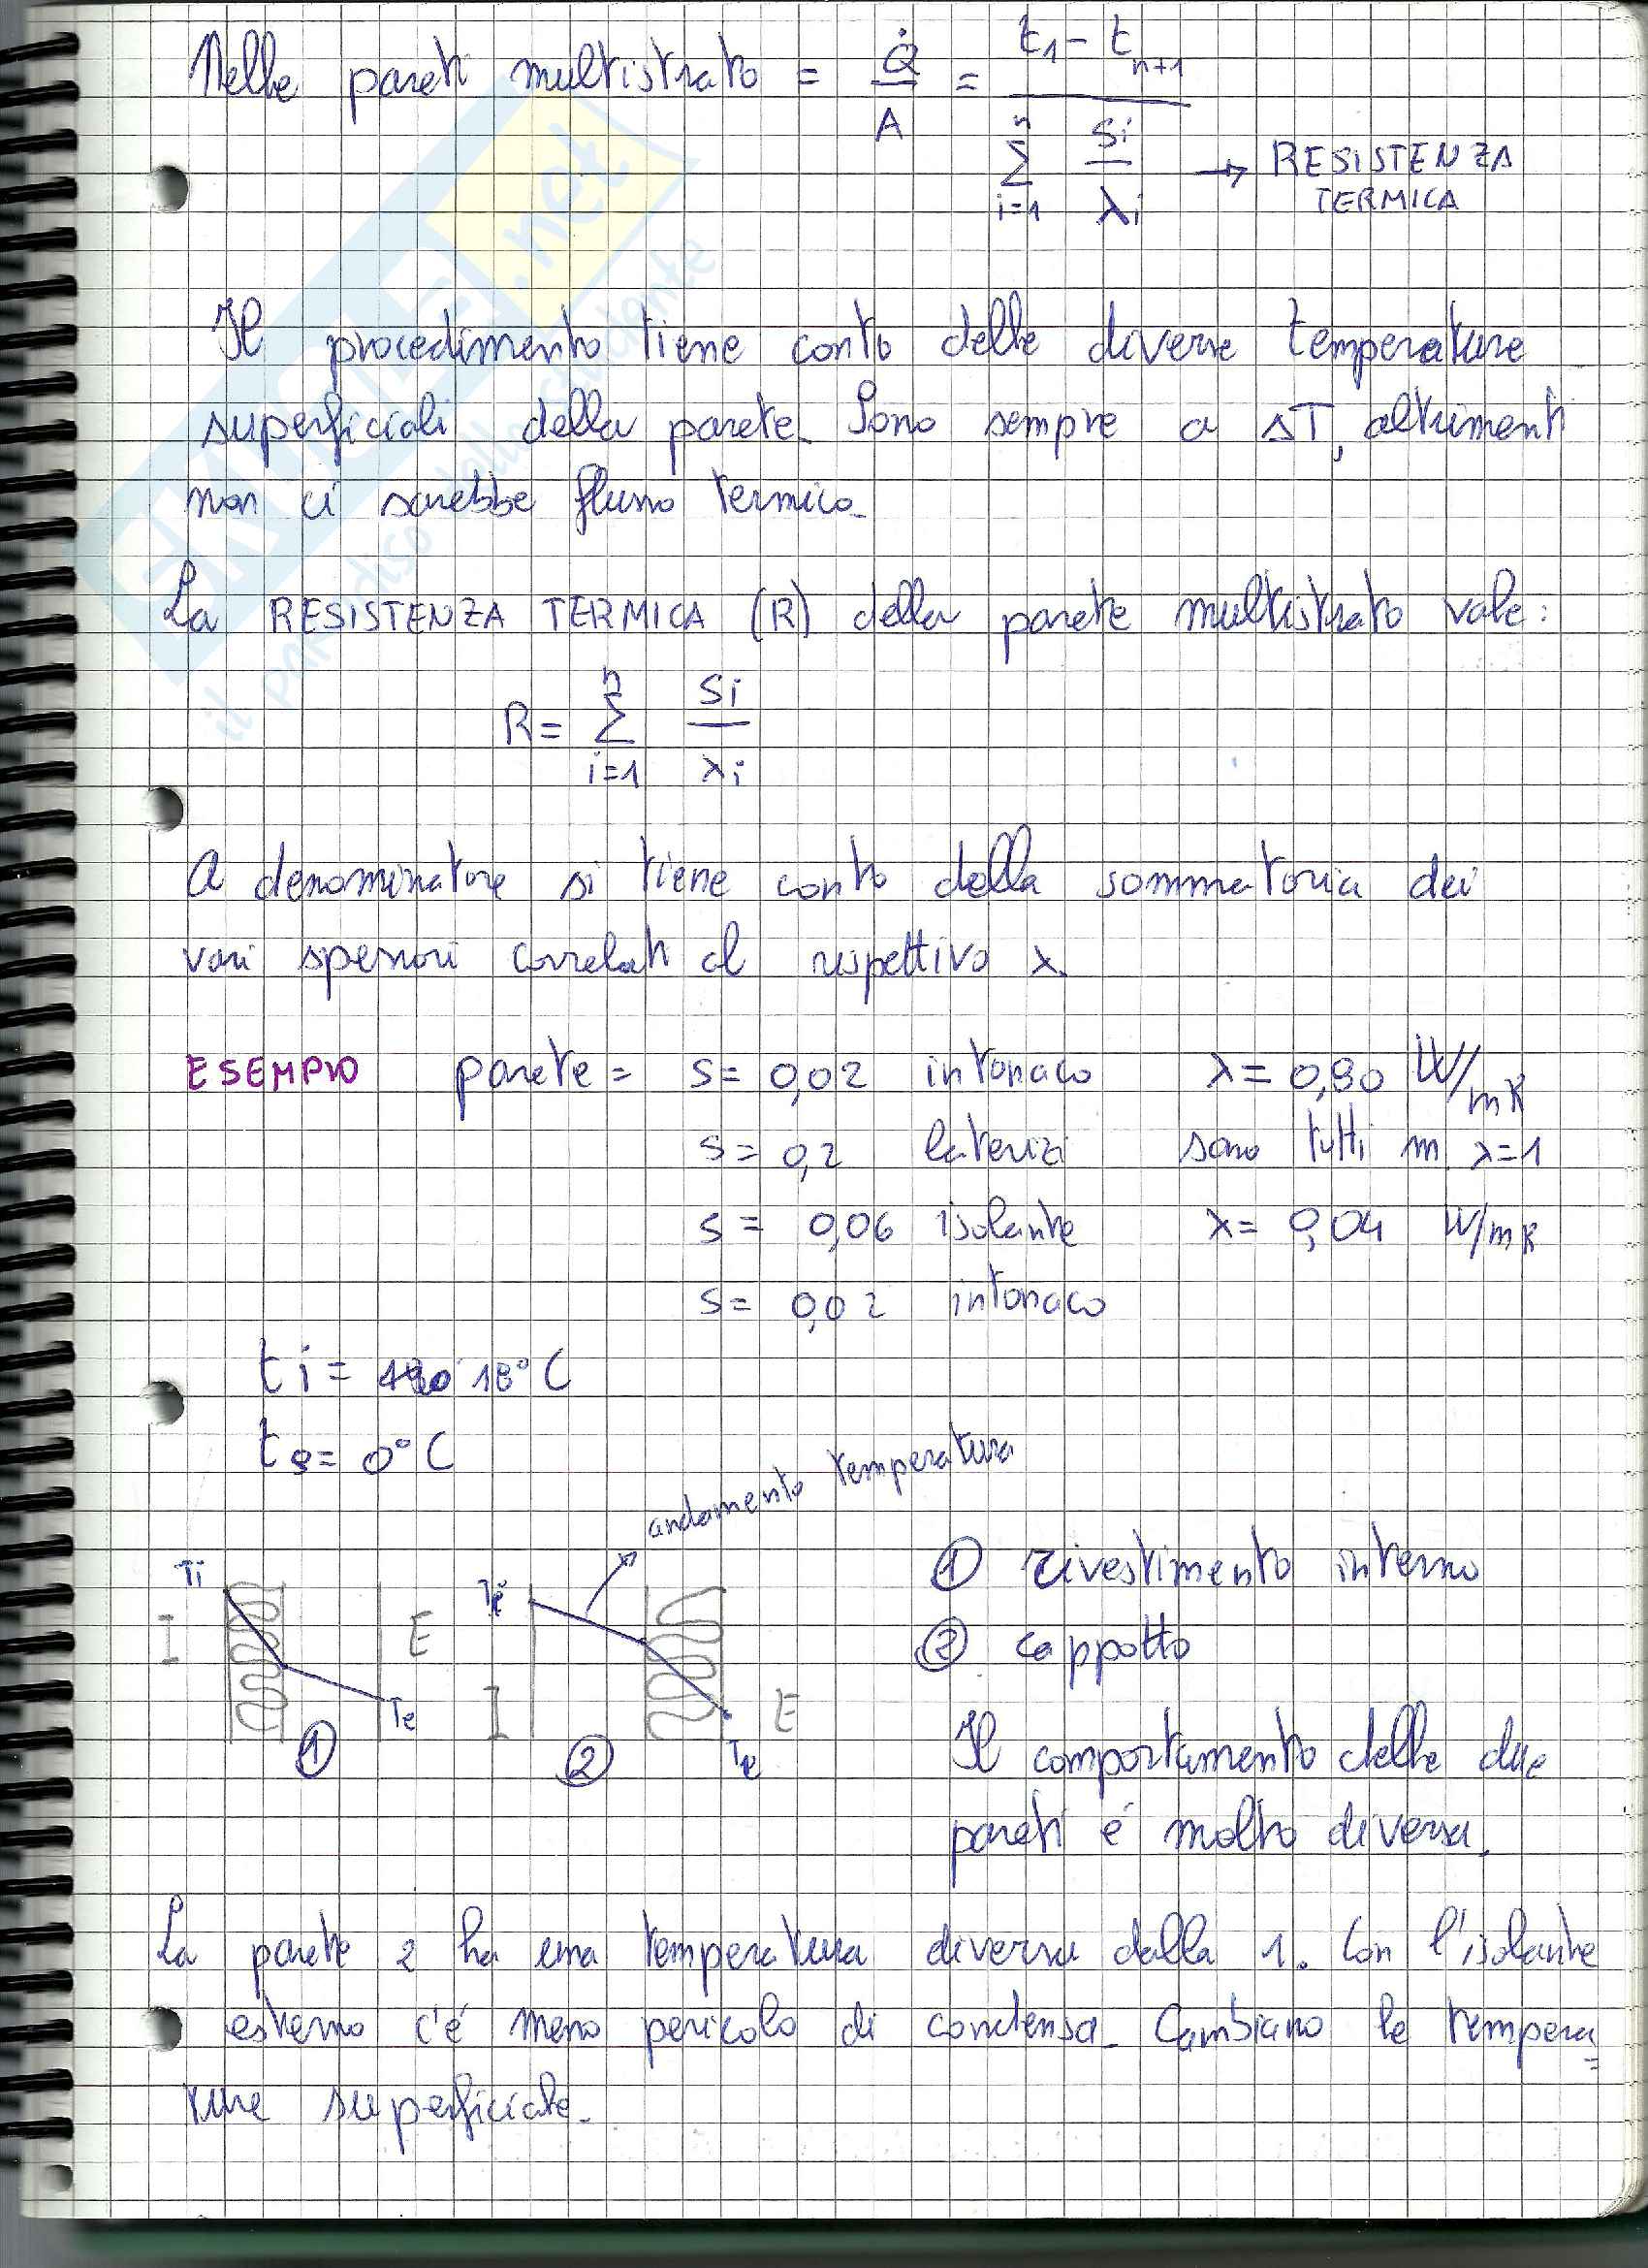 Nelle pareti multistrato = Q̇/A = (t1 - tn+1) / (Σ i=1 n si/λi) → RESISTENZA TERMICA
Il procedimento tiene conto delle diverse temperature
superficiali della parete. Sono sempre a ΔT, altrimenti
non ci sarebbe flusso termico.
La RESISTENZA TERMICA (R) della parete multistrato vale:
R = Σ i=1 n si/λi
A denominatore si tiene conto della sommatoria dei
vari spessori correlati al rispettivo λ.
ESEMPIO parete = s = 0,02 intonaco λ = 0,90 W/mK
s = 0,2 laterizi sono tutti m λ=1
s = 0,06 isolante λ = 0,04 W/mK
s = 0,02 intonaco
ti = 18°C
te = 0°C
andamento temperatura
Ti
I
E
Te
1
Ti
I
E
Te
2
1 rivestimento interno
2 cappotto
Il comportamento delle due
pareti é molto diversa.
La parete 2 ha una temperatura diversa dalla 1. Con l'isolante
esterno c'é meno pericolo di condensa. Cambiano le tempera=
ture superficiale.
SKUOLA.net
il paradiso dello studente